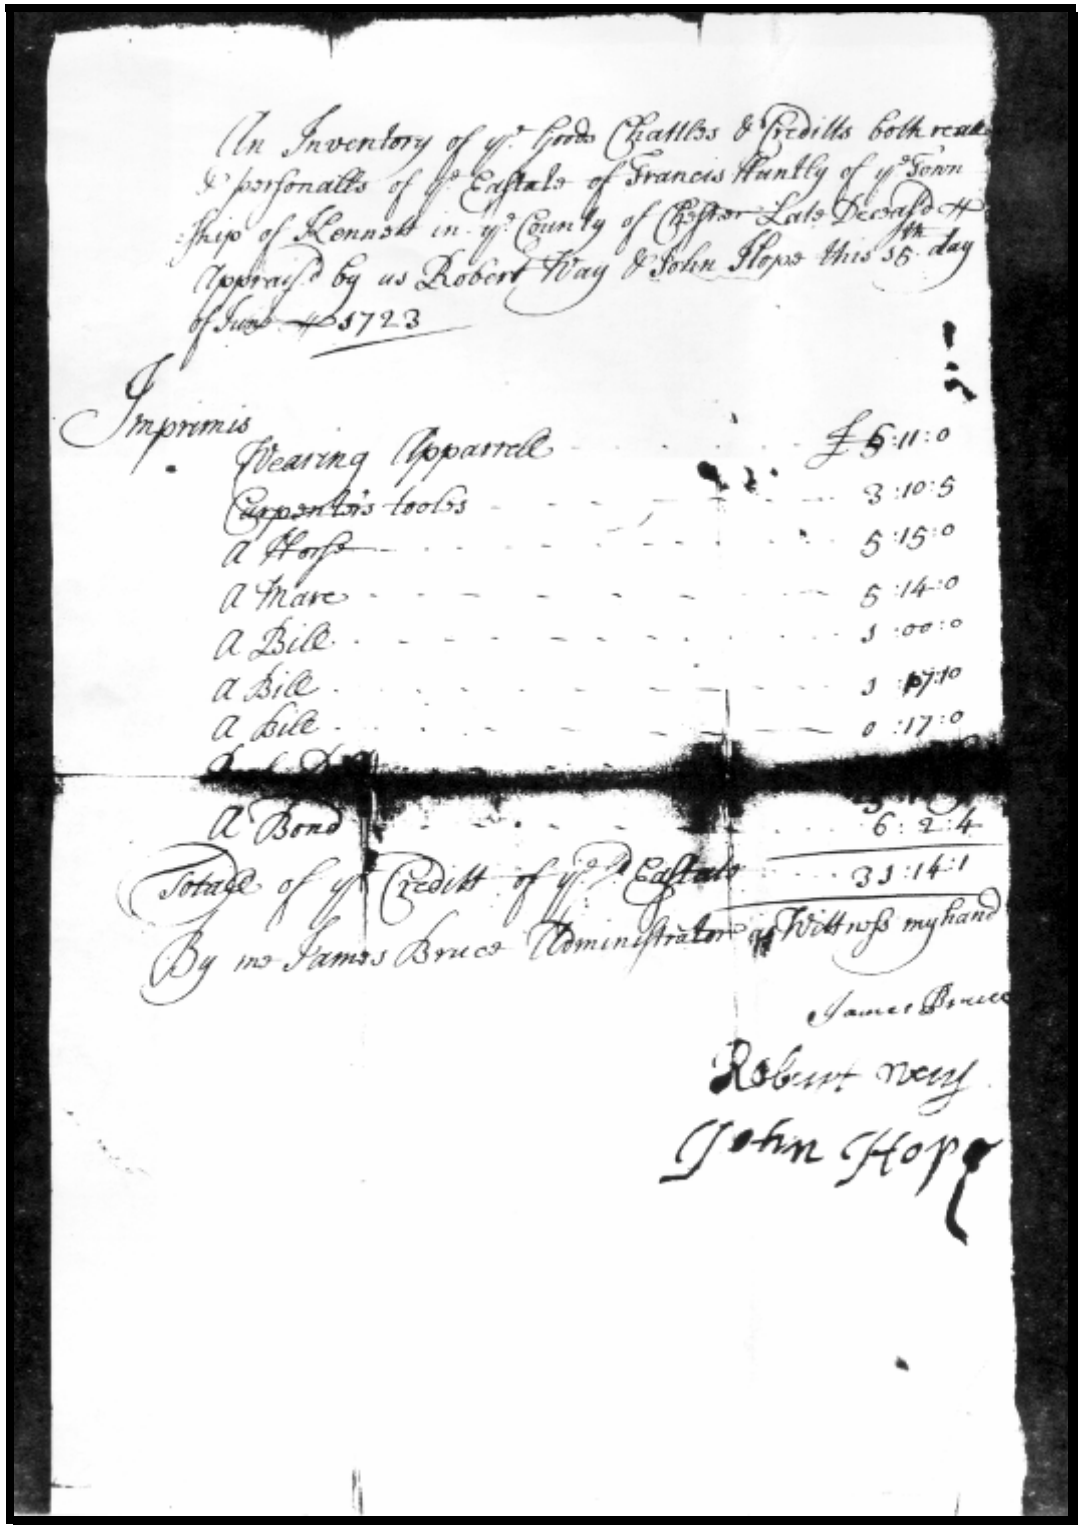 An Inventory of yᵉ Goods Chattles & Creditts both reall
& personalls of yᵉ Eastate of Francis Huntly of yᵉ Town
ship of Kennett in yᵉ County of Chester Late Deceasd
Apprais'd by us Robert Way & John Hope this 15th day
of June 1723
Imprimis
Wearing Apparrell £ 6:11:0
Carpenters tooles 3:10:5
A Horse 5:15:0
A Mare 5:14:0
A Bill 1:00:0
A Bill 1:17:10
A Bill 0:17:0
A Bond 6:2:4
Totall of yᵉ Creditt of yᵉ Eastate 31:14:1
By me James Bruce Administrator Wittness my hand
James Bruce
Robert Way
John Hope